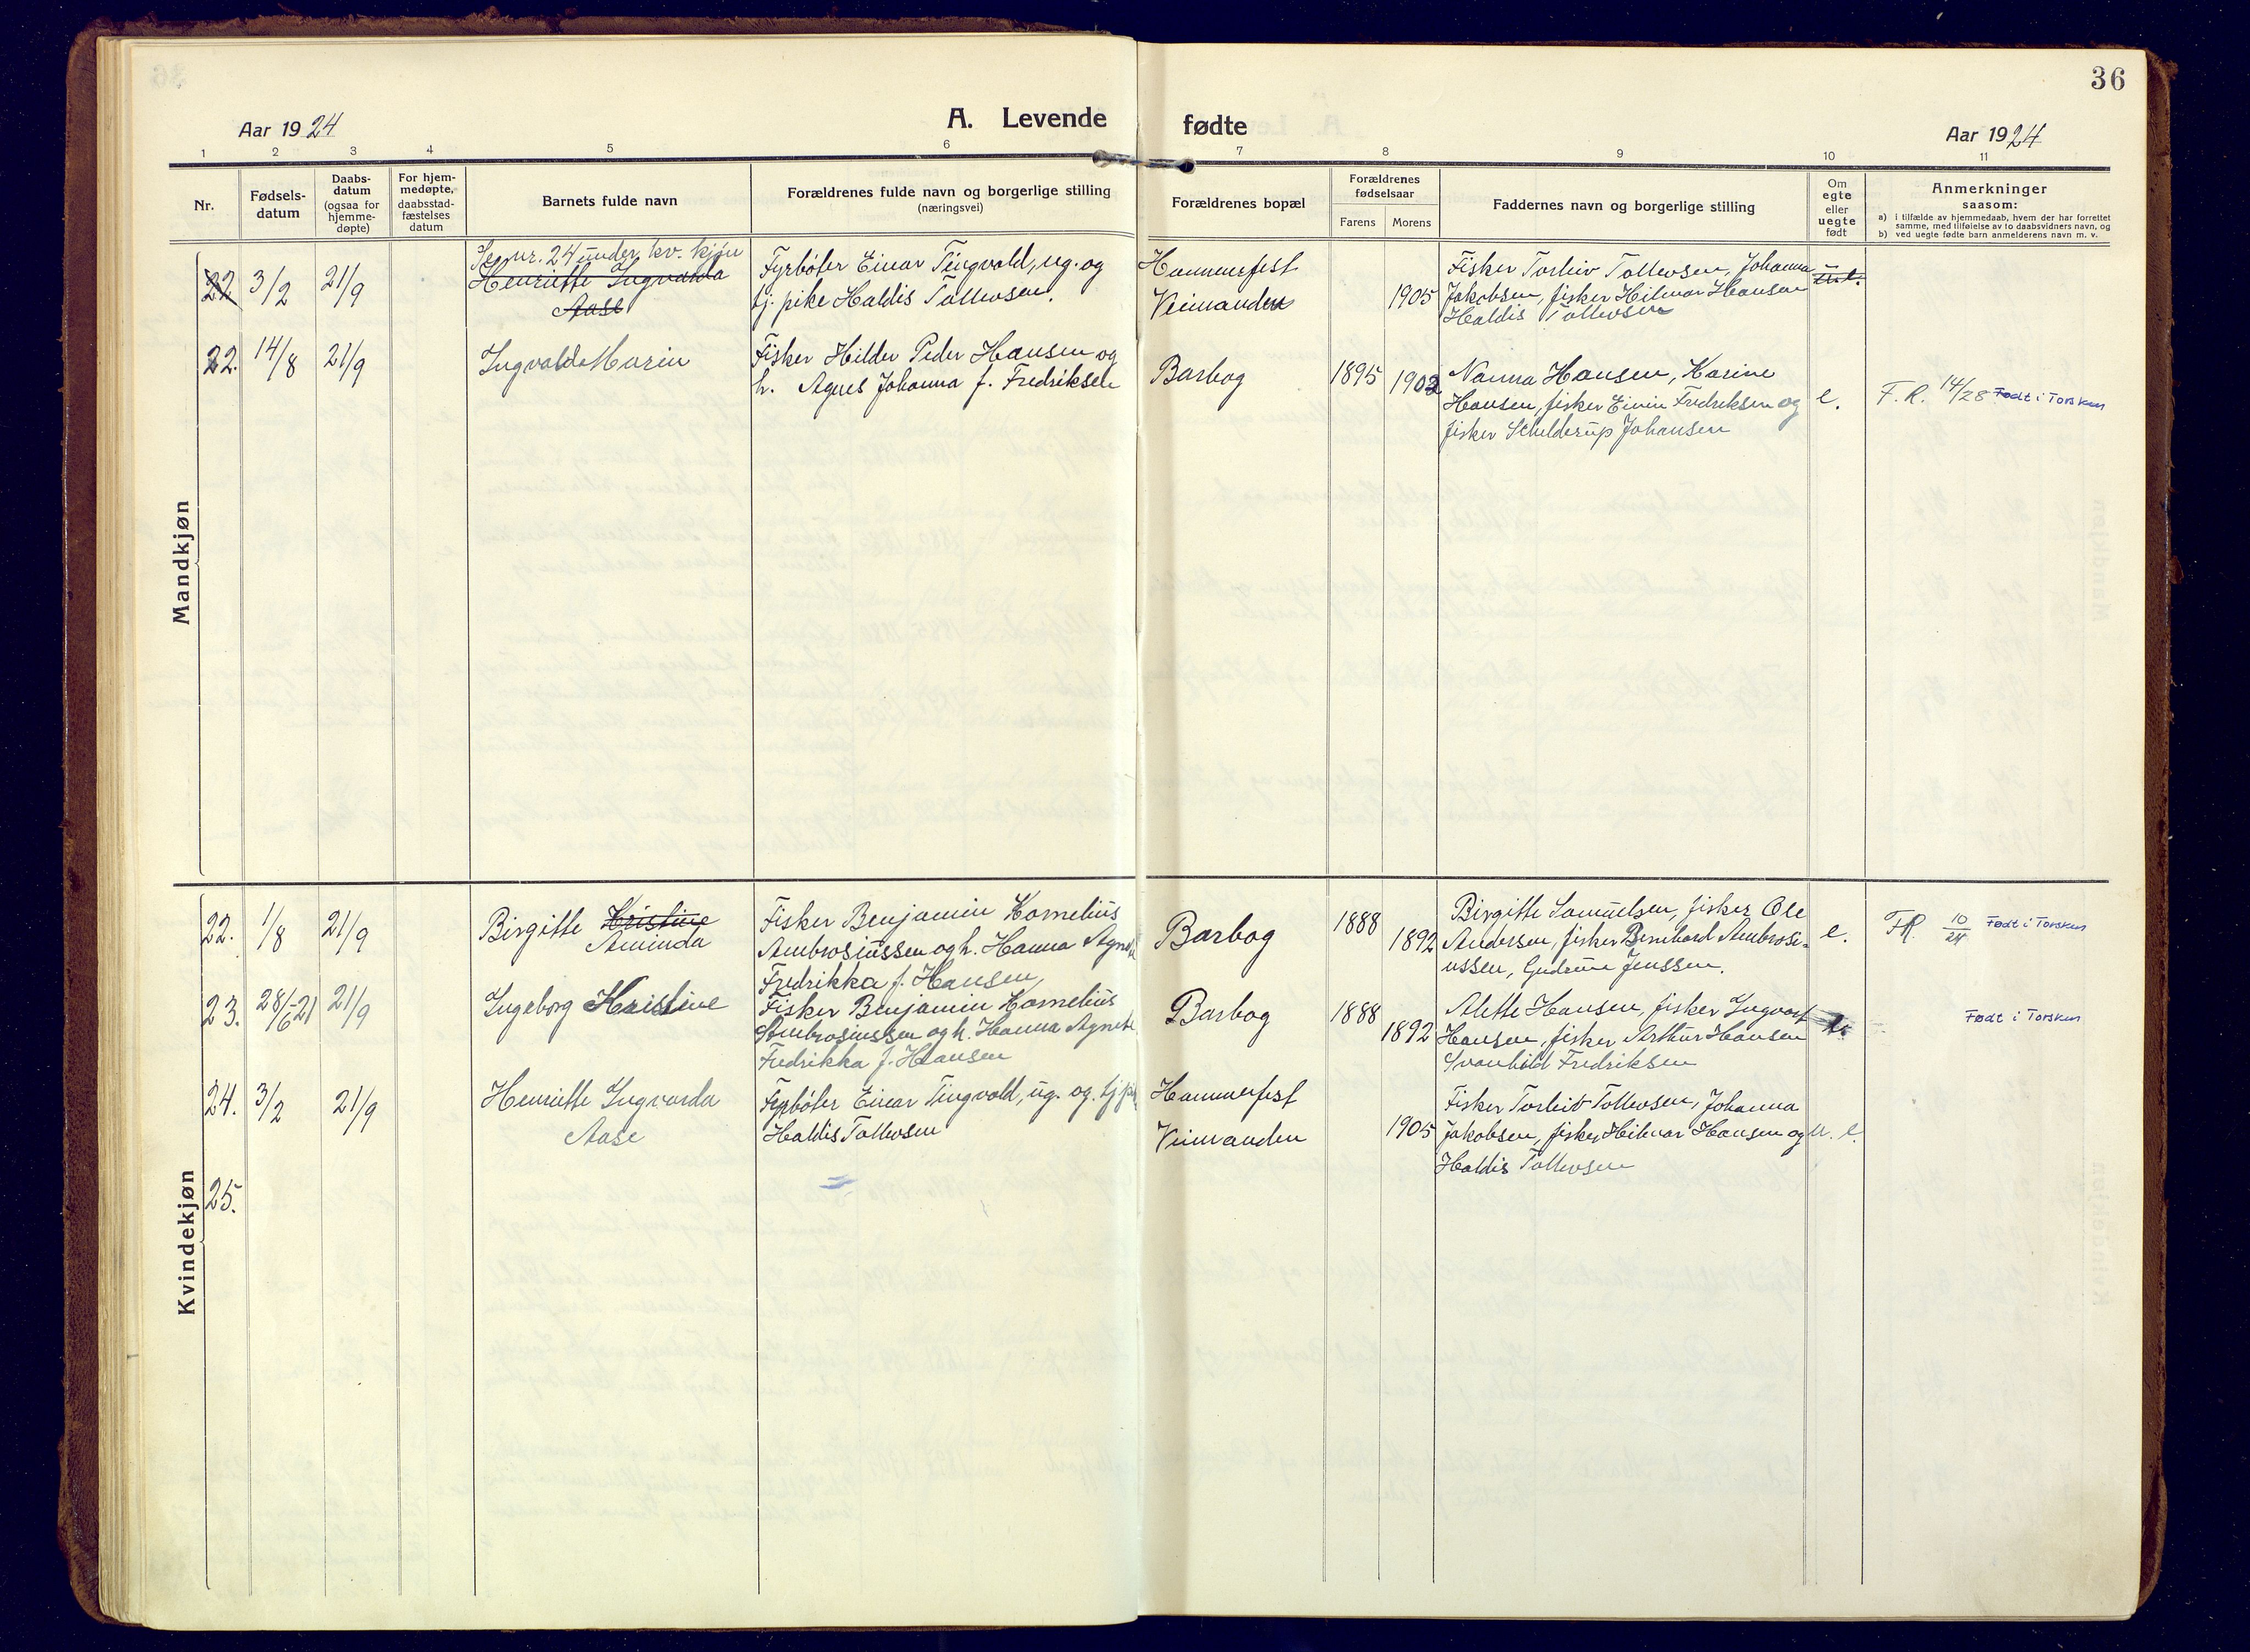 36
Aar 1924
A. Levende fødte
Aar 1924
1 2 3 4 5 6 7 8 9 10 11
Nr.
Fødsels-
datum
Daabs-
datum
(ogsaa for
hjemme-
døpte)
For hjem-
medøpte,
daabsstad-
fæstelses
datum
Barnets fulde navn
Forældrenes fulde navn og borgerlige stilling
(næringsvei)
Forældrenes bopæl
Forældrenes
fødselsaar
Farens Morens
Faddernes navn og borgerlige stilling
Om
egte
eller
uegte
født
Anmerkninger
saasom:
a) i tilfælde av hjemmedaab, hvem der har forrettet
samme, med tilføielse av to daabsvidners navn, og
b) ved uegte fødte barn anmelderens navn m. v.
Mandkjøn
22 3/2 21/9
Se nr. 24 under kv. kjøn
Henriette Ingvarda
Aase
Fyrbøter Einar Tingvold, ug. og
tj. pike Haldis Tollevsen.
Hammerfest
Veimanden
1905
Fisker Torleiv Tollevsen, Johanna
Jakobsen, fisker Hilmar Hansen
Haldis Tollevsen
u.e.
22. 14/8 21/9
Ingvald Marin
Fisker Hilder Peder Hansen og
h. Agnes Johanna f. Fredriksen
Barbog
1895 1902
Nanna Hansen, Karine
Hansen, fisker Eivin Fredriksen og
fisker Schelderup Johansen
e.
F. R. 14/28 Født i Torsken
Kvindekjøn
22. 1/8 21/9
Birgitte Kristine
Aminda
Fisker Benjamin Kornelius
Ambrosiussen og h. Hanna Agnete
Fredrikka f. Hansen,
Barbog
1888 1892
Birgitte Samuelsen, fisker Ole
Andersen, fisker Bernhard Ambrosi-
ussen, Gudrun Jenssen.
e.
FR. 10/24 Født i Torsken
23. 28/6-21 21/9
Ingeborg Kristine
Fisker Benjamin Kornelius
Ambrosiussen og h. Hanna Agnete
Fredrikka f. Hansen
Barbog
1888 1892
Alette Hansen, fisker Ingvart
Hansen, fisker Arthur Hansen
Svanhild Fredriksen
Født i Torsken
24. 3/2 21/9
Henriette Ingvarda
Aase
Fyrbøter Einar Tingvold, ug. og. tj.
Haldis Tollevsen
Hammerfest
Veimanden
1905
Fisker Torleiv Tollevsen, Johanna
Jakobsen, fisker Hilmar Hansen og
Haldis Tollevsen
u. e.
25.